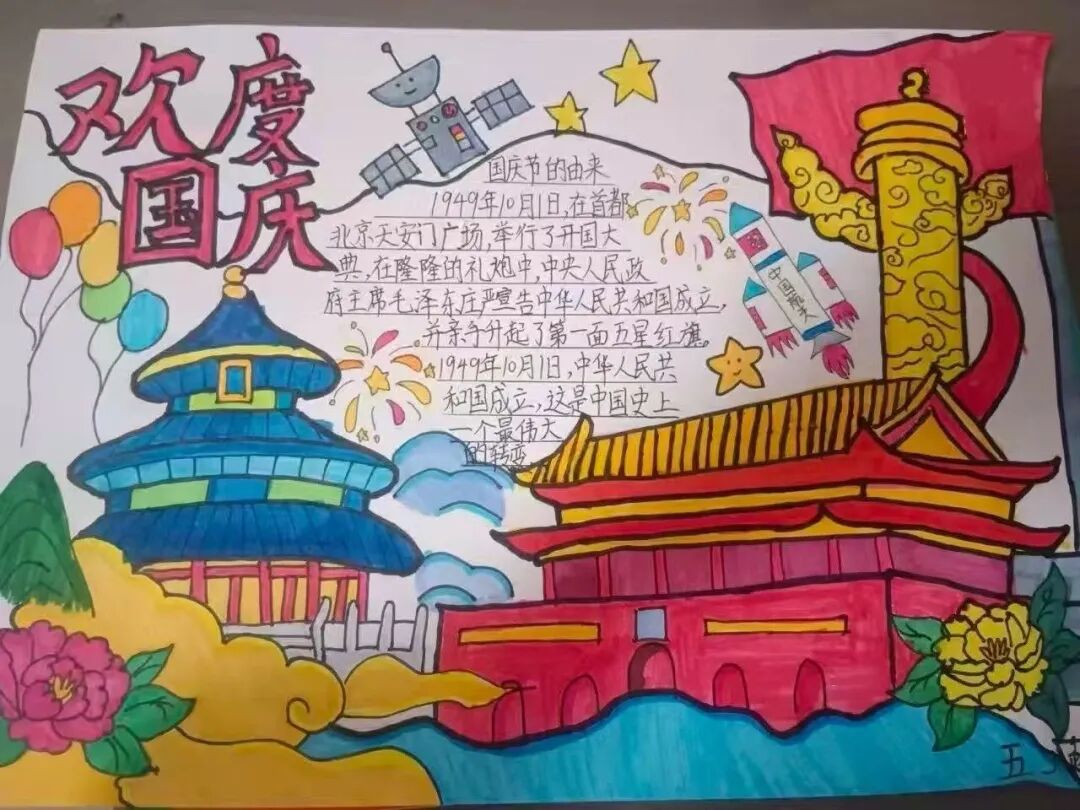 欢度
国庆
国庆节的由来
1949年10月1日,在首都
北京天安门广场,举行了开国大
典,在隆隆的礼炮中,中央人民政
府主席毛泽东庄严宣告中华人民共和国成立,
并亲手升起了第一面五星红旗。
1949年10月1日,中华人民共
和国成立,这是中国史上
一个最伟大
的转变
中国航天
五